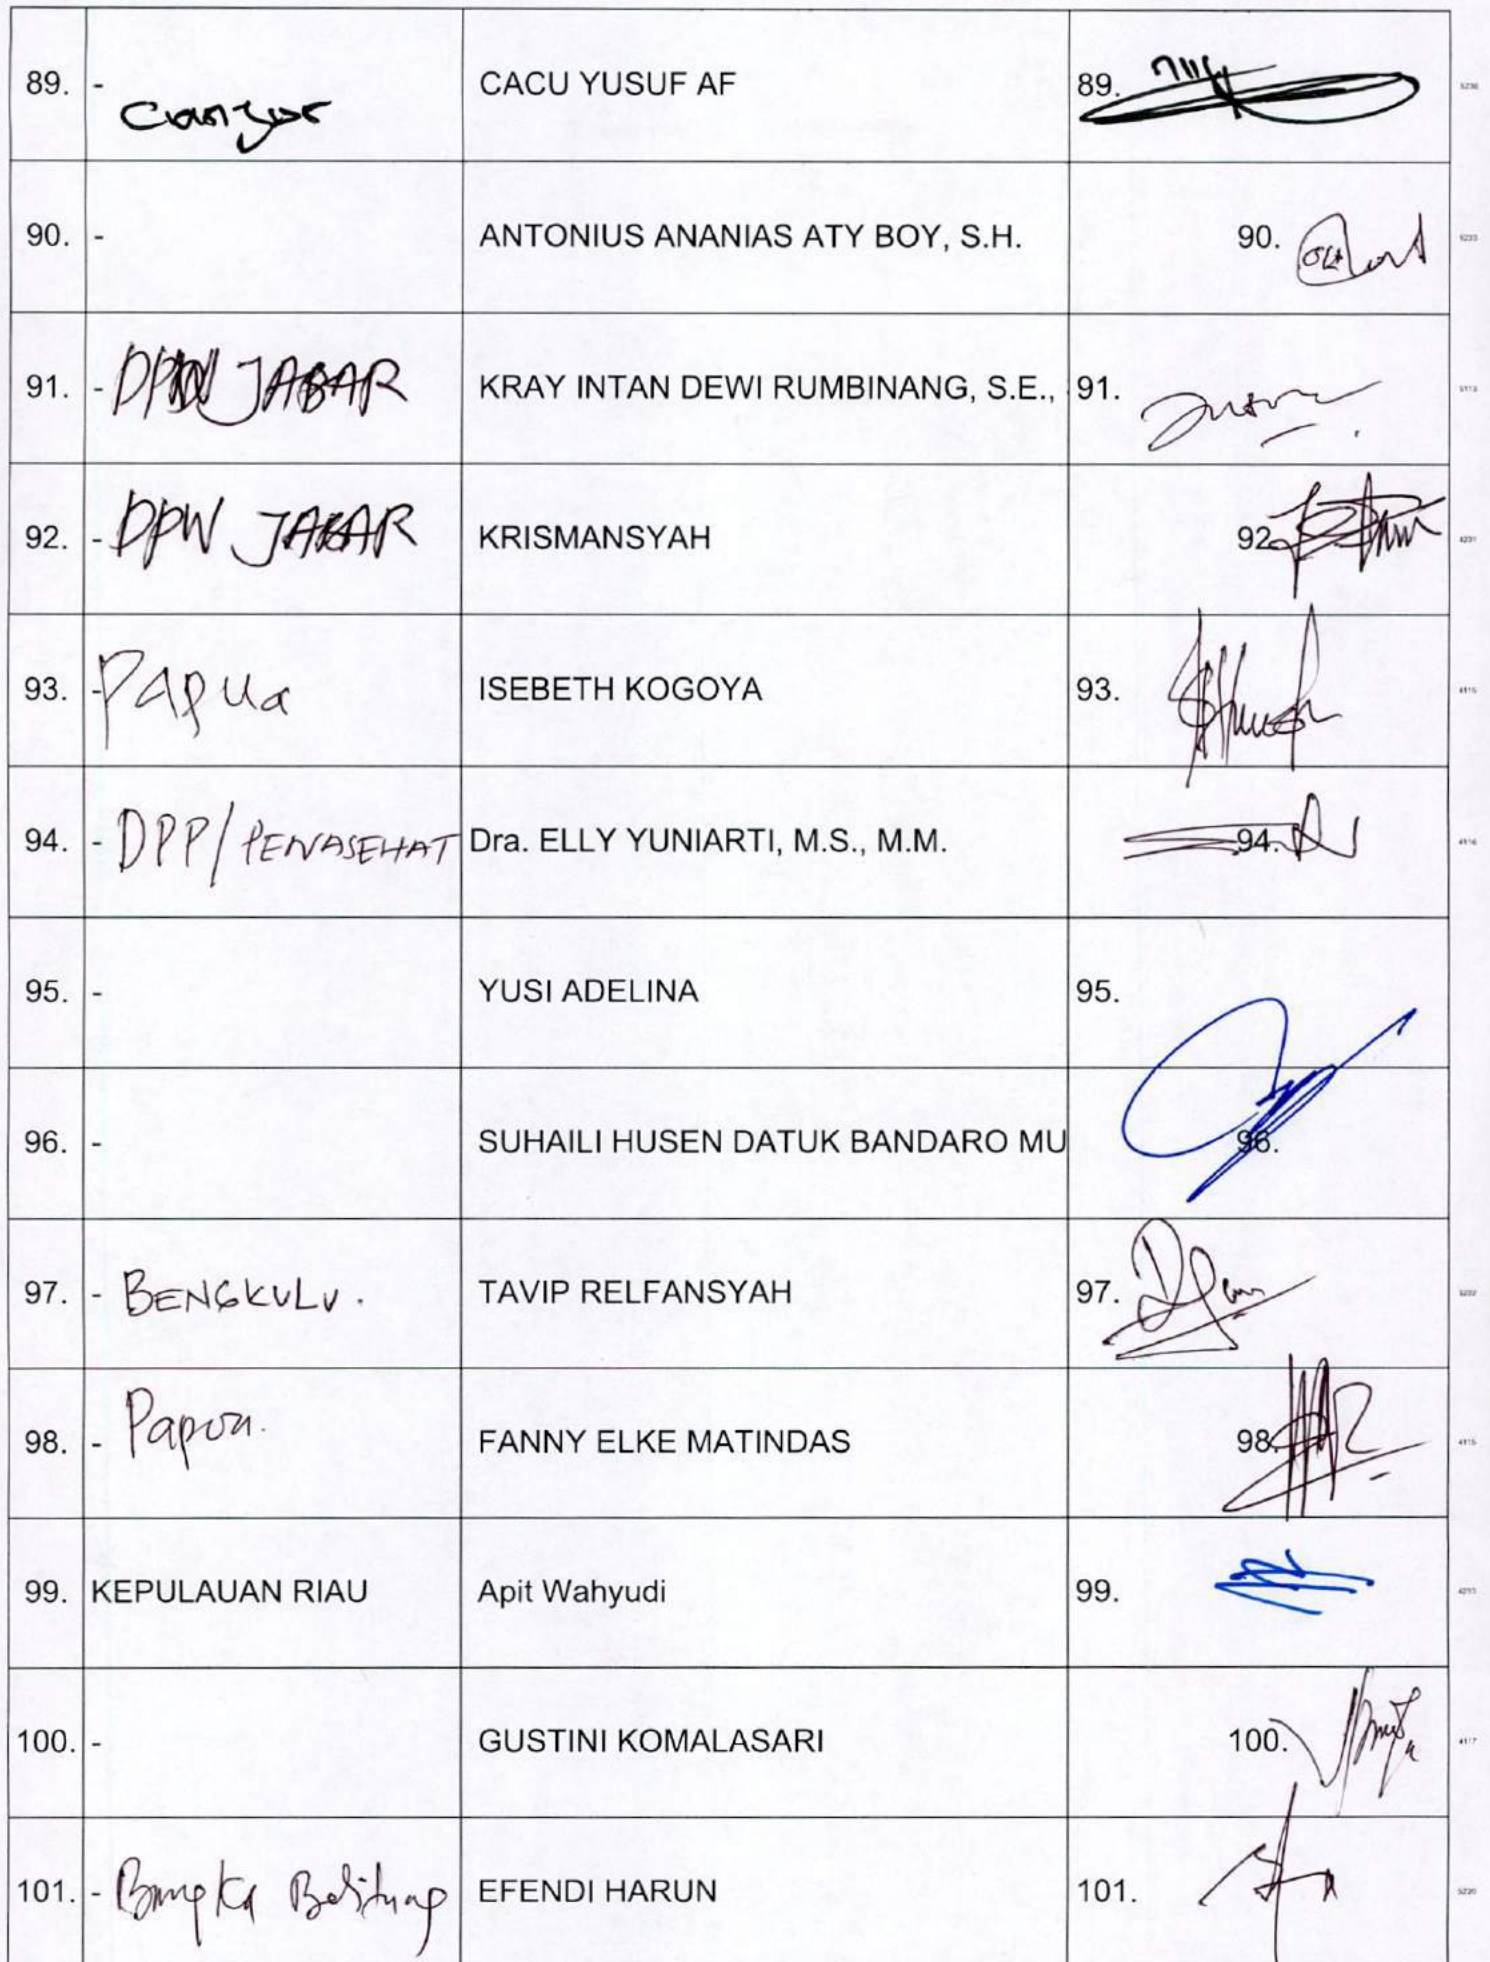 89. - Cianjur CACU YUSUF AF 89.
90. - ANTONIUS ANANIAS ATY BOY, S.H. 90.
91. - DPW JABAR KRAY INTAN DEWI RUMBINANG, S.E., 91.
92. - DPW JABAR KRISMANSYAH 92.
93. - PAPua ISEBETH KOGOYA 93.
94. - DPP/PENASEHAT Dra. ELLY YUNIARTI, M.S., M.M. 94.
95. - YUSI ADELINA 95.
96. - SUHAILI HUSEN DATUK BANDARO MU 96.
97. - BENGKULU. TAVIP RELFANSYAH 97.
98. - Papua. FANNY ELKE MATINDAS 98.
99. KEPULAUAN RIAU Apit Wahyudi 99.
100. - GUSTINI KOMALASARI 100.
101. - Bangka Belitung EFENDI HARUN 101.